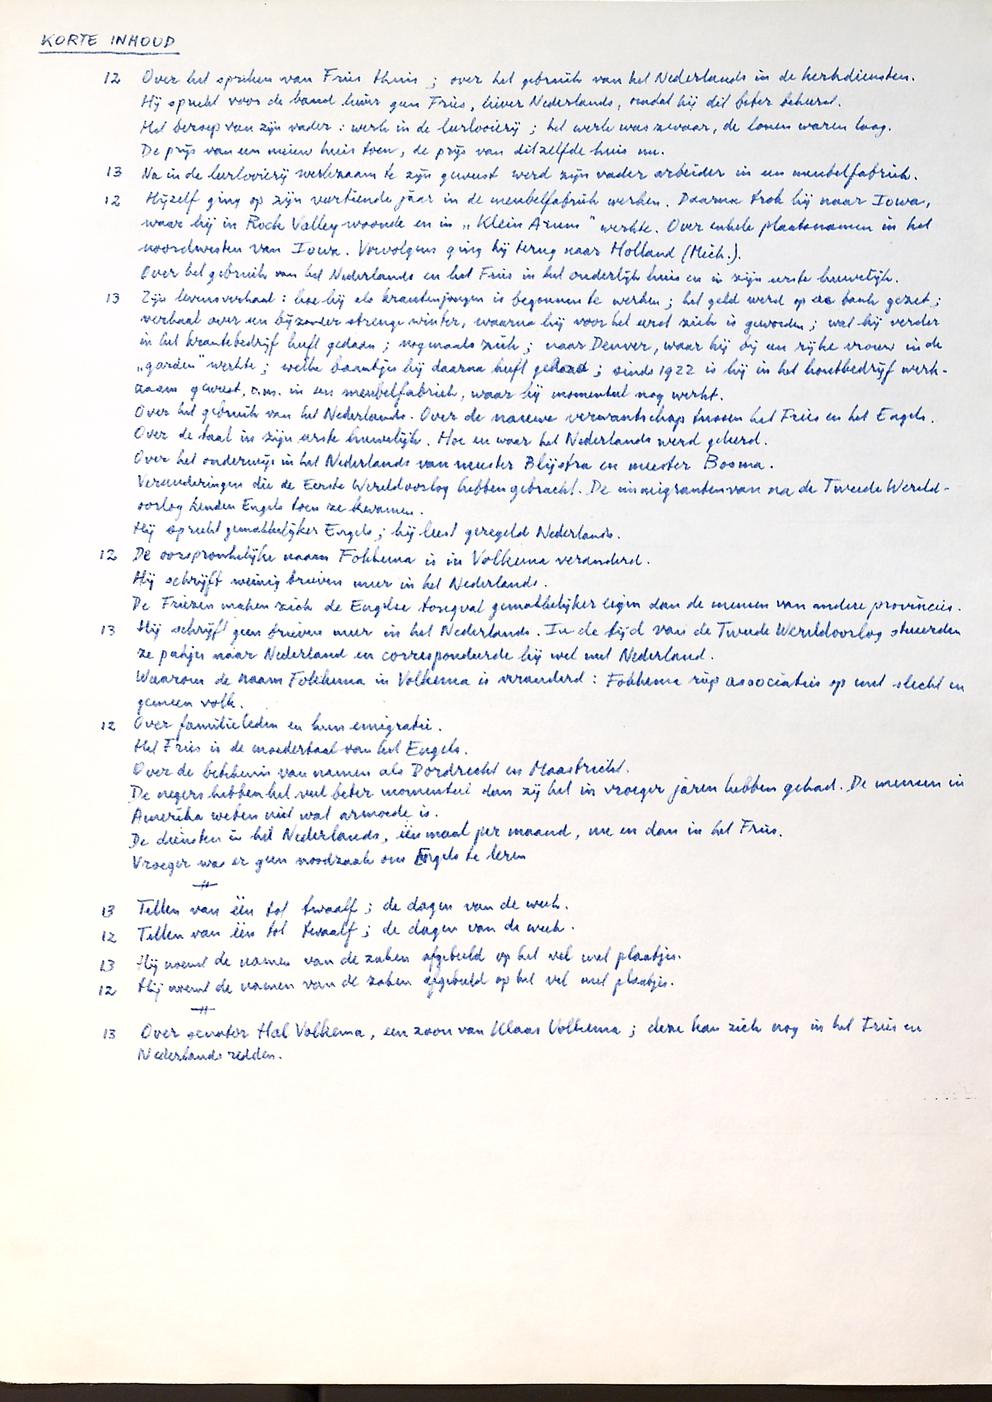 KORTE INHOUD
12 Over het spreken van Fries thuis ; over het gebruik van het Nederlands in de kerkdiensten.
Hij spreekt voor de band liever geen Fries, liever Nederlands, omdat hij dit beter beheerst.
Het beroep van zijn vader : werk in de leerlooierij ; het werk was zwaar, de lonen waren laag.
De prijs van een nieuw huis toen, de prijs van ditzelfde huis nu.
13 Na in de leerlooierij werkzaam te zijn geweest werd zijn vader arbeider in een meubelfabriek.
12 Hijzelf ging op zijn veertiende jaar in de meubelfabriek werken. Daarna trok hij naar Iowa,
waar hij in Rock Valley woonde en in „Klein Arum" werkte. Over enkele plaatsnamen in het
noordwesten van Iowa. Vervolgens ging hij terug naar Holland (Mich.).
Over het gebruik van het Nederlands en het Fries in het ouderlijk huis en in zijn eerste huwelijk.
13 Zijn levensverhaal : hoe hij als krantenjongen is begonnen te werken ; het geld werd op de bank gezet ;
verhaal over een bijzonder strenge winter, waarna hij voor het eerst ziek is geworden ; wat hij verder
in het krantebedrijf heeft gedaan ; nogmaals ziek ; naar Denver, waar hij bij een rijke vrouw in de
„garden" werkte ; welke baantjes hij daarna heeft gehad ; sinds 1922 is hij in het houtbedrijf werk-
zaam geweest, o.m. in een meubelfabriek, waar hij momenteel nog werkt.
Over het gebruik van het Nederlands. Over de nauwe verwantschap tussen het Fries en het Engels.
Over de taal in zijn eerste huwelijk. Hoe en waar het Nederlands werd geleerd.
Over het onderwijs in het Nederlands van meester Blijstra en meester Bosma.
Veranderingen die de Eerste Wereldoorlog hebben gebracht. De immigranten van na de Tweede Wereld-
oorlog kenden Engels toen ze kwamen.
Hij spreekt gemakkelijker Engels ; hij leest geregeld Nederlands.
12 De oorspronkelijke naam Fokkema is in Volkema veranderd.
Hij schrijft weinig brieven meer in het Nederlands.
De Friezen maken zich de Engelse tongval gemakkelijker eigen dan de mensen van andere provincies.
13 Hij schrijft geen brieven meer in het Nederlands. In de tijd van de Tweede Wereldoorlog stuurden
ze pakjes naar Nederland en correspondeerde hij wel met Nederland.
Waarom de naam Fokkema in Volkema is veranderd : Fokkema riep associaties op met slecht en
gemeen volk.
12 Over familieleden en hun emigratie.
Het Fries is de moedertaal van het Engels.
Over de betekenis van namen als Dordrecht en Maastricht.
De negers hebben het veel beter momenteel dan zij het in vroeger jaren hebben gehad. De mensen in
Amerika weten niet wat armoede is.
De diensten in het Nederlands, één maal per maand, nu en dan in het Fries.
Vroeger was er geen noodzaak om Engels te leren
13 Tellen van één tot twaalf ; de dagen van de week.
12 Tellen van één tot twaalf ; de dagen van de week.
13 Hij noemt de namen van de zaken afgebeeld op het vel met plaatjes.
12 Hij noemt de namen van de zaken afgebeeld op het vel met plaatjes.
13 Over senator Hal Volkema, een zoon van Klaas Volkema ; deze kan zich nog in het Fries en
Nederlands redden.